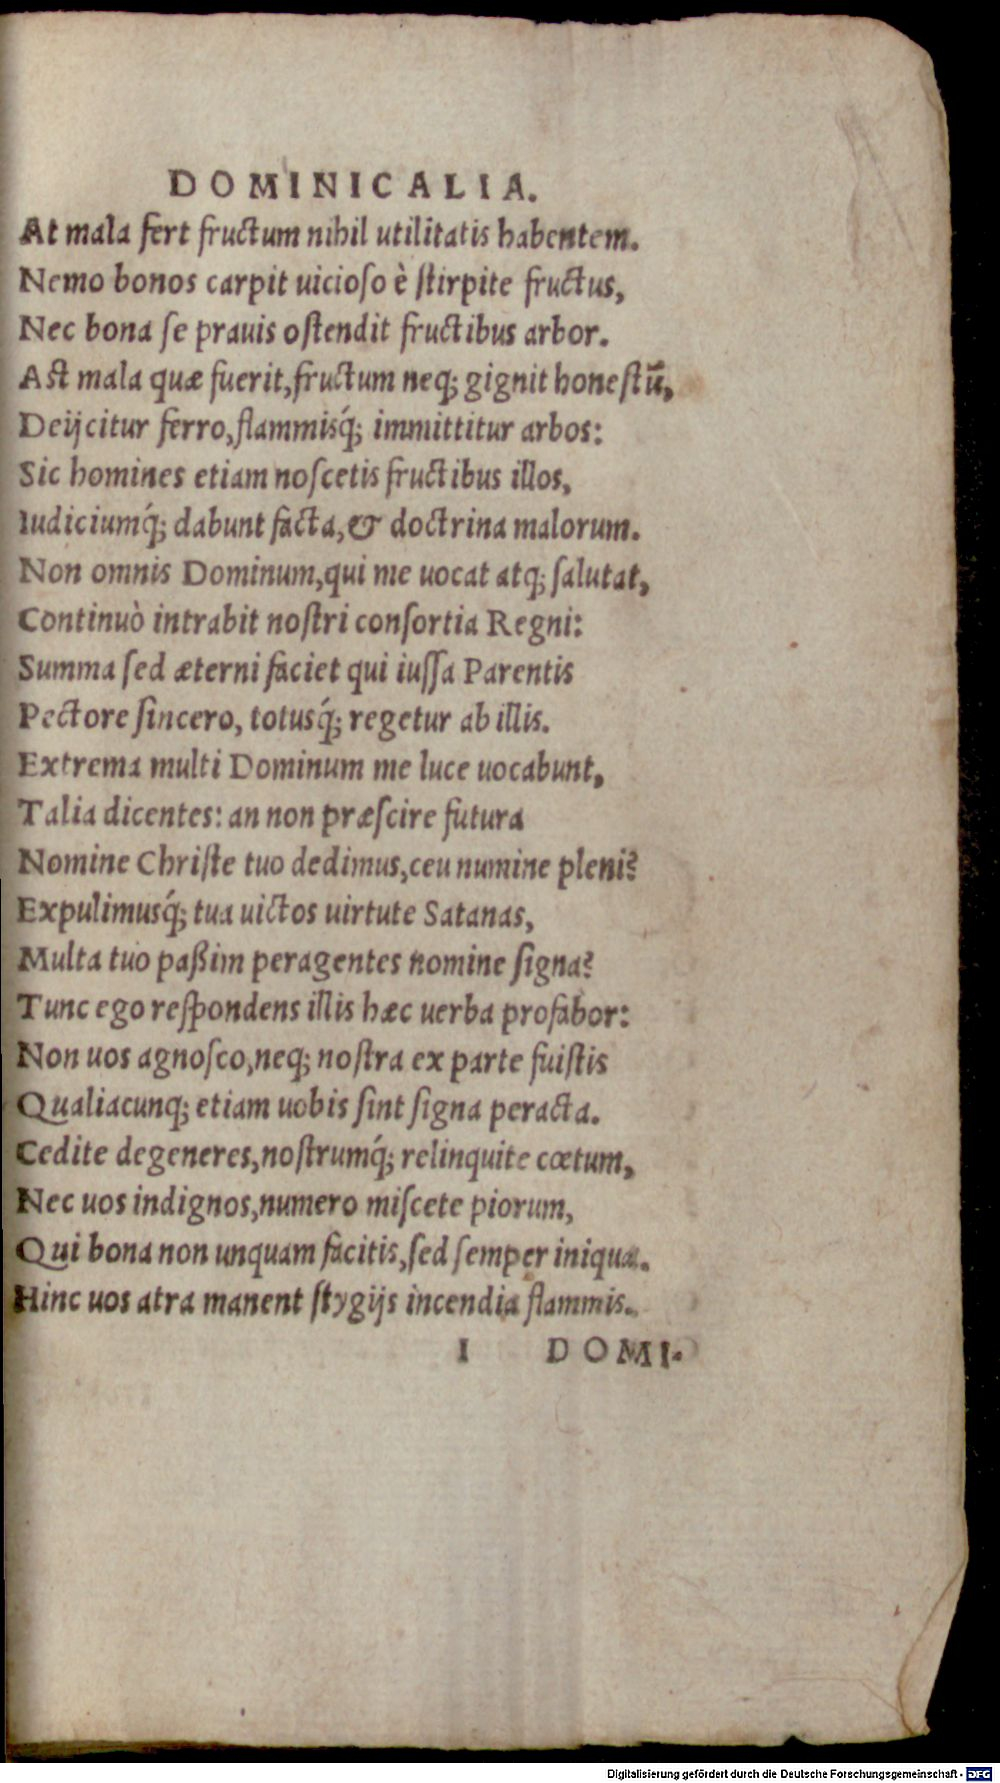 DOMINICALIA.
At mala fert fructum nihil utilitatis habentem.
Nemo bonos carpit uicioso è ſtirpite fructus,
Nec bona ſe prauis oſtendit fructibus arbor.
Aſt mala quæ fuerit, fructum neq; gignit honeſtũ,
Deijcitur ferro, flammisq́; immittitur arbos:
Sic homines etiam noſcetis fructibus illos,
Iudiciumq́; dabunt facta, & doctrina malorum.
Non omnis Dominum, qui me uocat atq; ſalutat,
Continuò intrabit noſtri conſortia Regni:
Summa ſed æterni faciet qui iuſſa Parentis
Pectore ſincero, totusq́; regetur ab illis.
Extrema multi Dominum me luce uocabunt,
Talia dicentes: an non præſcire futura
Nomine Chriſte tuo dedimus, ceu numine pleni?
Expulimusq́; tua uictos uirtute Satanas,
Multa tuo paßim peragentes nomine ſigna?
Tunc ego reſpondens illis hæc uerba profabor:
Non uos agnoſco, neq; noſtra ex parte fuiſtis
Qualiacunq; etiam uobis ſint ſigna peracta.
Cedite degeneres, noſtrumq́; relinquite cœtum,
Nec uos indignos, numero miſcete piorum,
Qui bona non unquam facitis, ſed ſemper iniqua.
Hinc uos atra manent ſtygijs incendia flammis.
I DOMI-
Digitalisierung gefördert durch die Deutsche Forschungsgemeinschaft - DFG